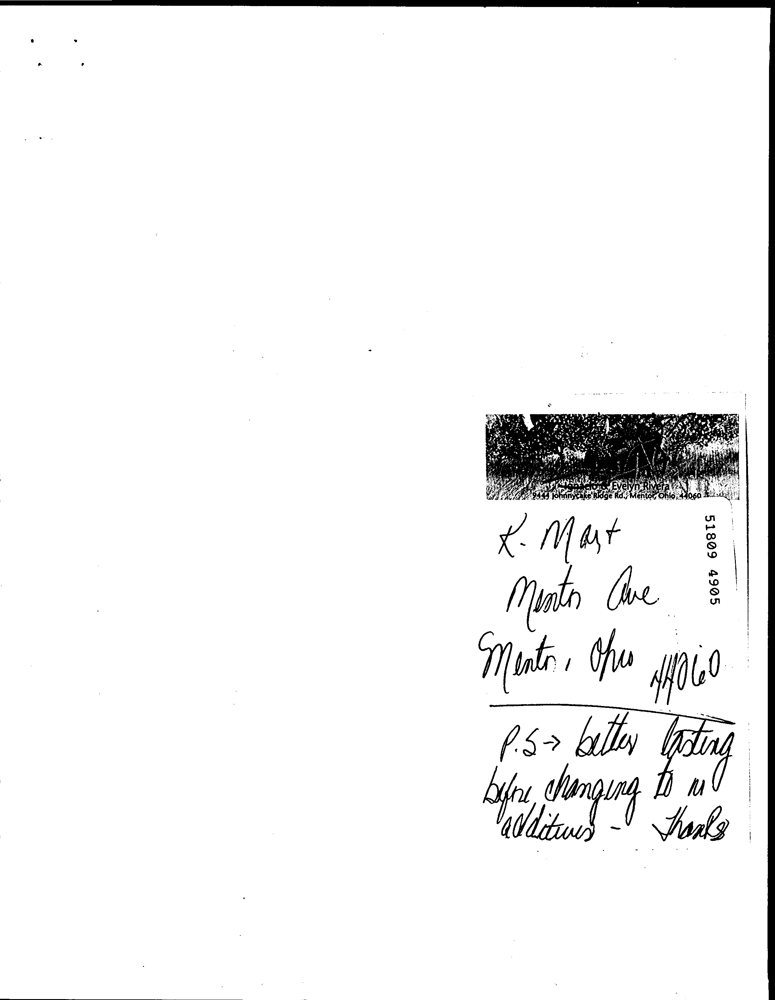 Ignacio & Evelyn Rivera
9444 Johnnycake Ridge Rd., Mentor, Ohio, 44060
K. Mart
Mentor Ave
Mentor, Ohio 44060
P.S → better tasting
before changing to no
additives - Thanks
51809 4905